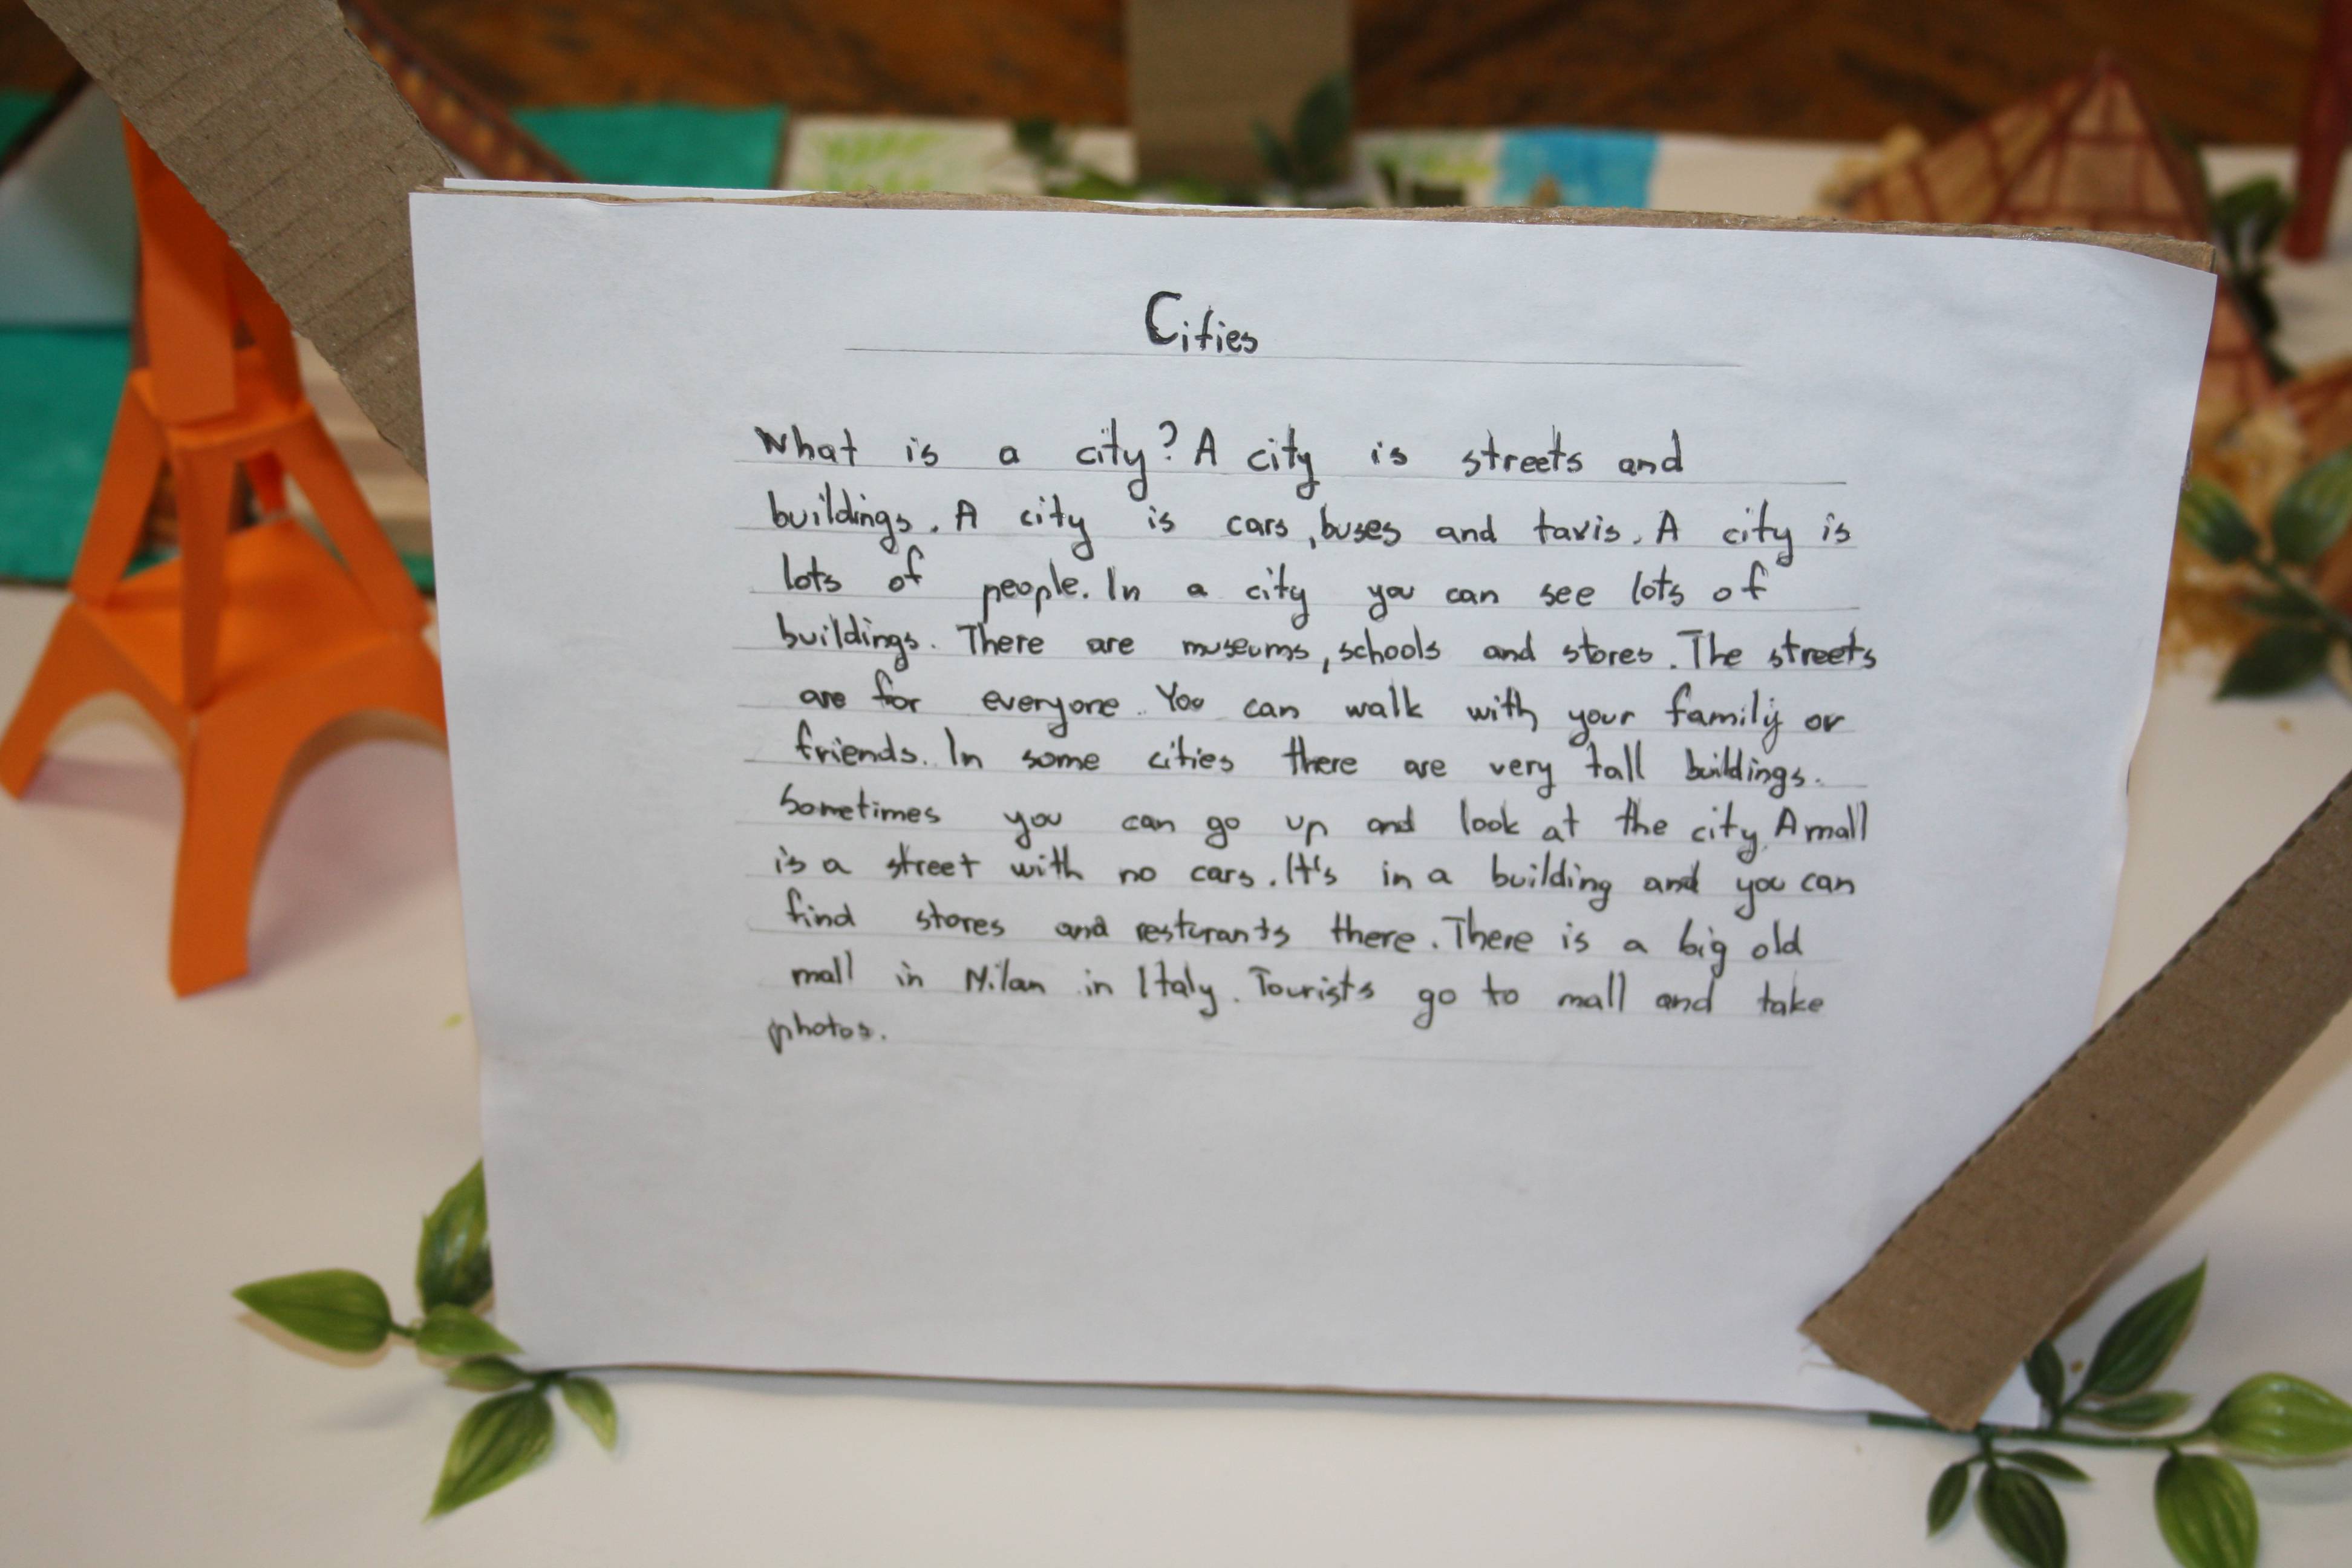 Cities
What is a city? A city is streets and
buildings. A city is cars, buses and taxis. A city is
lots of people. In a city you can see lots of
buildings. There are museums, schools and stores. The streets
are for everyone. You can walk with your family or
friends. In some cities there are very tall buildings.
Sometimes you can go up and look at the city. A mall
is a street with no cars. It's in a building and you can
find stores and resturants there. There is a big old
mall in Milan in Italy. Tourists go to mall and take
photos.